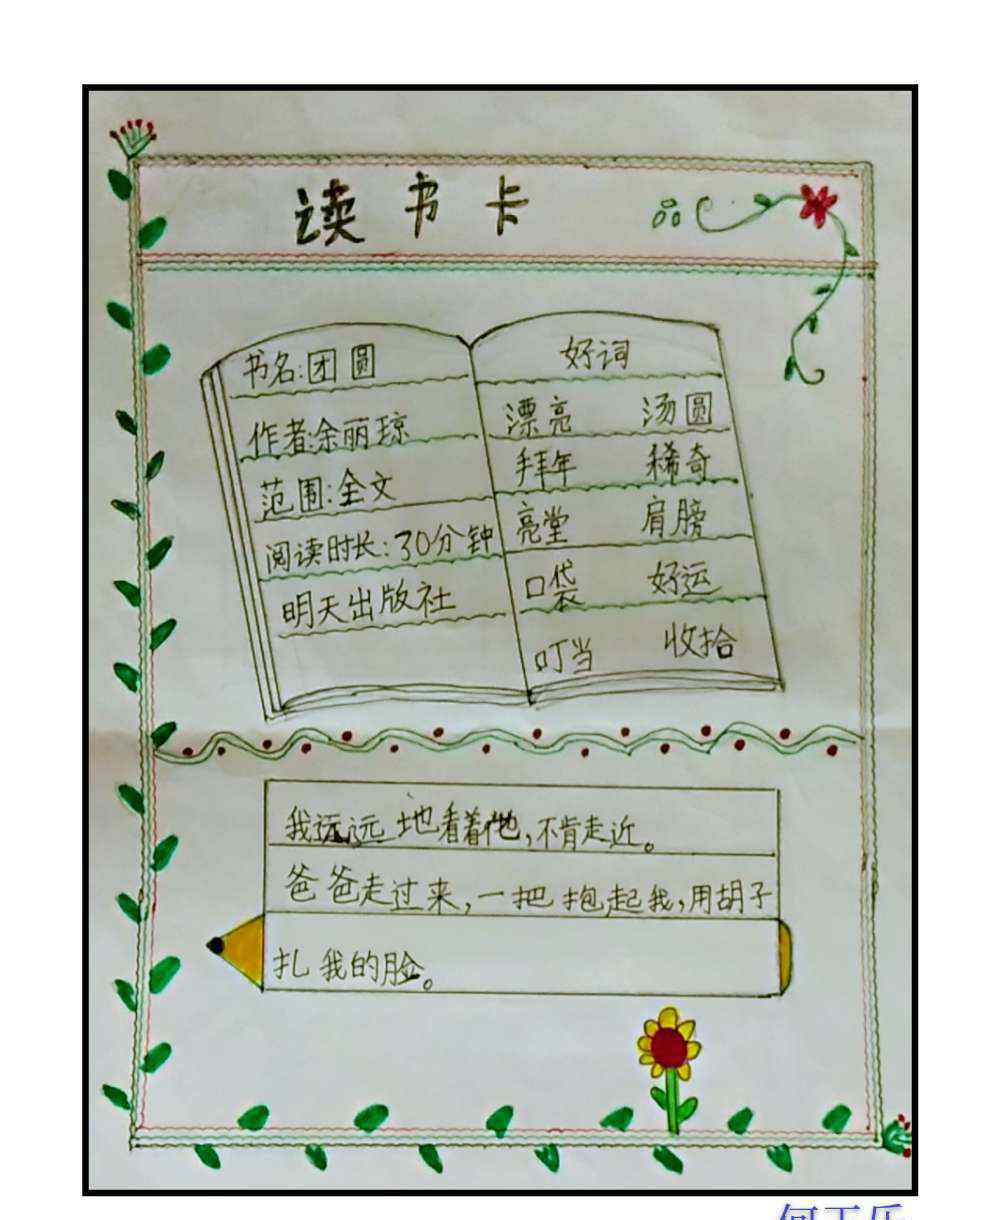 读书卡
书名:团圆
作者:余丽琼
范围:全文
阅读时长:30分钟
明天出版社
好词
漂亮 汤圆
拜年 稀奇
亮堂 肩膀
口袋 好运
叮当 收拾
我远远地看着他,不肯走近。
爸爸走过来,一把抱起我,用胡子
扎我的脸。